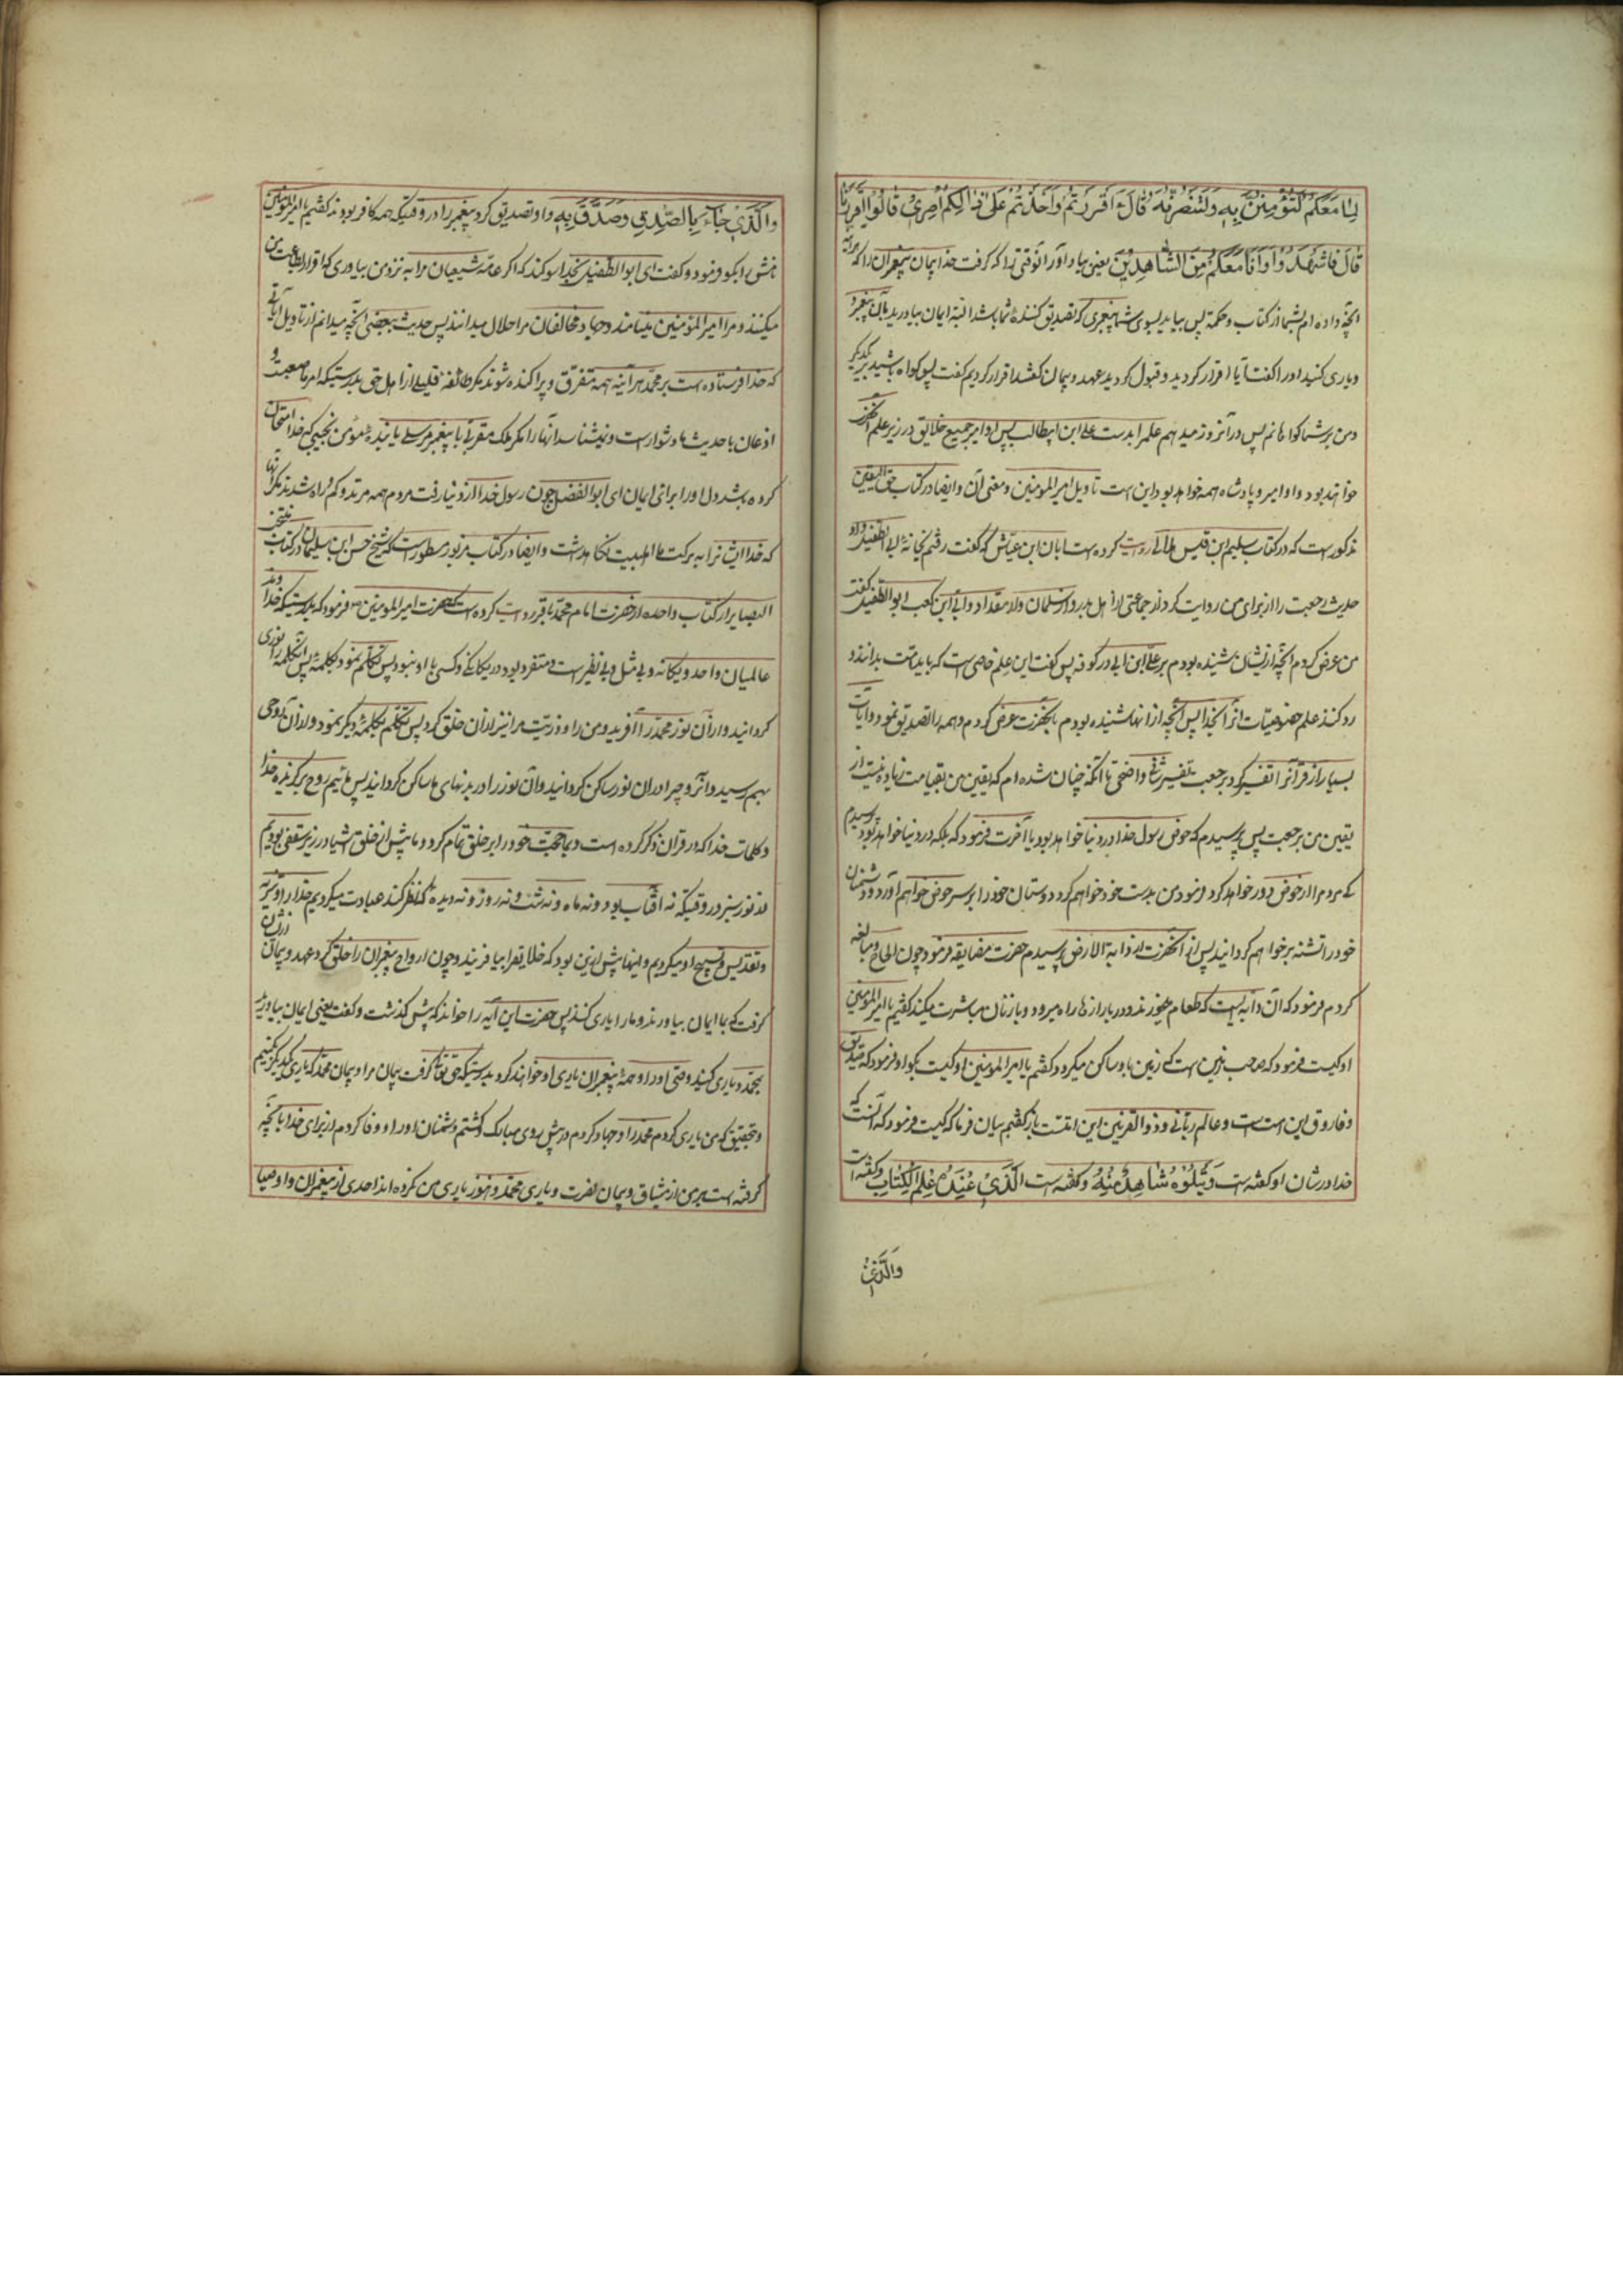 لِمَا مَعَكُمْ لَتُؤْمِنُنَّ بِهِ وَلَتَنْصُرُنَّهُ قَالَ ءَاَقْرَرْتُمْ وَاَخَذْتُمْ عَلَىٰ ذٰلِكُمْ اِصْرِیْ قَالُوْا اَقْرَرْنَا
قَالَ فَاشْهَدُوْا وَاَنَا مَعَكُمْ مِنَ الشَّاهِدِیْنَ یعنی بیاد آور آنوقتی را که گرفت خدا پیمان پیغمبران را که هرآینه
آنچه داده ام بشما از کتاب و حکمة پس بیاید بسوی شما پیغمبری که تصدیق کنندهٔ شما باشد البته ایمان بیاورید بآن پیغمبر
و یاری کنید او را گفت آیا اقرار کردید و قبول کردید عهد و پیمان گفتند اقرار کردیم گفت پس گواه باشید بر یکدیگر
و من بر شما گواهانم پس در آنروز میدهم علم را بدست علی ابن ابیطالب پس او امیر جمیع خلایق در زیر علم آنحضرت
خواهند بود و او امیر و پادشاه همه خواهد بود این است تاویل امیر المومنین و معنی آن و ایضا در کتاب حق الیقین
مذکور است که در کتاب سلیم ابن قیس هلالی روایت کرده است ابان ابن عیاش که گفت رفتم بخانهٔ ابی الطفیل و او
حدیث رجعت را از برای من روایت کرد از جماعتی از اهل بدر و از سلمان و از مقداد و ابی ابن کعب ابو الطفیل گفت
من عرض کردم آنچه از ایشان شنیده بودم بر علی ابن ابی در کوفه پس گفت این علم خاصی است که باید امت بدانند و
رد کنند علم خصوصیات آنرا بخدا پس آنچه از آنها شنیده بودم بآنحضرت عرض کردم و همه را تصدیق نمود و آیات
بسیار از قرآن را تفسیر کرد برجعت تفسیر شافی واضحی تا آنکه چنان شده ام که یقین من بقیامت زیاده نیست از
یقین من برجعت پس پرسیدم که حوض رسول خدا در دنیا خواهد بود یا آخرت فرمود که بلکه در دنیا خواهد بود پرسیدم
که مردم را از حوض دور خواهد کرد فرمود من بدست خود خواهم کرد و دوستان خود را بر سر حوض خواهم آورد و دشمنان
خود را تشنه بر خواهم گردانید پس از آنحضرت از دابة الارض پرسیدم حضرت مضایقه فرمود چون الحاح و مبالغه
کردم فرمود که آن دابه ایست که طعام میخورد و در بازارها راه میرود و با زنان مباشرت میکند گفتم یا امیر المومنین
او کیست فرمود که صاحب زمین است که زمین باو ساکن میگردد گفتم یا امیر المومنین او کیست بگو او فرمود که صدیق
و فاروق این امت است و عالم ربانی و ذو القرنین این امتست باز گفتم بیان فرما که کیست فرمود که آنست که
خدا در شان او گفته است وَیَتْلُوْهُ شَاهِدٌ مِنْهُ وگفته است اَلَّذِیْ عِنْدَهُ عِلْمُ الْكِتَابِ وگفته است
وَالَّذِیْ
وَالَّذِیْ جَاءَ بِالصِّدْقِ وَصَدَّقَ بِهِ و او تصدیق کرد پیغمبر را در وقتیکه همه کافر بودند گفتم یا امیر المومنین
نامش بگو فرمود و گفت ای ابو الطفیل بخدا سوگند که اگر عامهٔ شیعیان مرا به نزد من بیاوری که اقرار بطاعت من
میکنند و مرا امیر المؤمنین مینامند و جهاد مخالفان مرا حلال میدانند پس حدیث ببعضی آنچه میدانم از تاویل آیاتی
که خدا فرستاده است بر محمد هر آینه همه متفرق و پراکنده شوند مگر طائفهٔ قلیلی از اهل حق بدرستیکه امر ما صعبست و
اذعان باحدیث ما دشوار است و نیشناسد آنها را مگر ملک مقربی یا پیغمبر مرسلی یا بندهٔ مؤمن نجیبی که خدا امتحان
کرده باشد دل او را برای ایمان ای ابو الفضل چون رسول خدا از دنیا رفت مردم همه مرتد و گمراه شدند مگر آنها
که خدا ایشان را به برکت ما اهلبیت نگاهداشت و ایضا در کتاب مزبور مسطور است که شیخ حسن ابن سلیمان در کتاب منتخب
البصایر از کتاب واحده از حضرت امام محمد باقر روایت کرده است که حضرت امیر المومنین فرمود که بدرستیکه خداوند
عالمیان واحد و یگانه و بی مثل و بی نظیر است و متفرد بود در یگانگی و کسی با او نبود پس تکلم نمود بکلمهٔ پس آن کلمه را نوری
گردانید و از آن نور محمد را آفرید و من را و ذریت مرا نیز از آن خلق کرد پس تکلم بکلمهٔ دیگر نمود و از آن روحی
بهم رسید و آنروح را در آن نور ساکن گردانید و آن نور را در بدنهای ما ساکن گردانید پس مائیم روح برگزیده خدا
و کلمات خدا که در قرآن ذکر کرده است و بما حجت خود را بر خلق تمام کرد و ما پیش از خلق اشیا در زیر سقفی بودیم
از نور سبز در وقتیکه نه آفتاب بود و نه ماه و نه شب و نه روز و نه دیدهٔ که نظر کند عبادت میکردیم خدا را و تنزیه
و تقدیس و تسبیح او میکردیم و اینها پیش از این بود که خلایق را بیافریند و چون ارواح پیغمبران را خلق کرد عهد و پیمان از ایشان
گرفت که بما ایمان بیاورند و ما را یاری کنند پس حضرت این آیه را خواند که پیش گذشت و گفت یعنی ایمان بیاورید
بمحمد و یاری کنید وصی او را و همهٔ پیغمبران یاری او خواهند کرد بدرستیکه حق تعالی گرفت پیمان مرا و پیمان محمد که یاری یکدیگر کنیم
و بتحقیق که من یاری کردم محمد را و جهاد کردم در پیش روی مبارک و کشتم دشمنان او را و وفا کردم از برای خدا بآنچه
گرفته است بر من از میثاق و پیمان نصرت و یاری محمد و هنوز یاری من نکرده اند احدی از پیغمبران و اوصیا